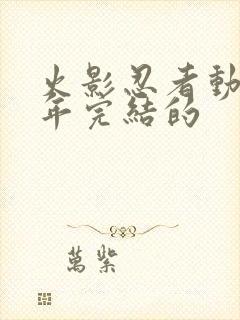 火影忍者動
年完結的
萬紫